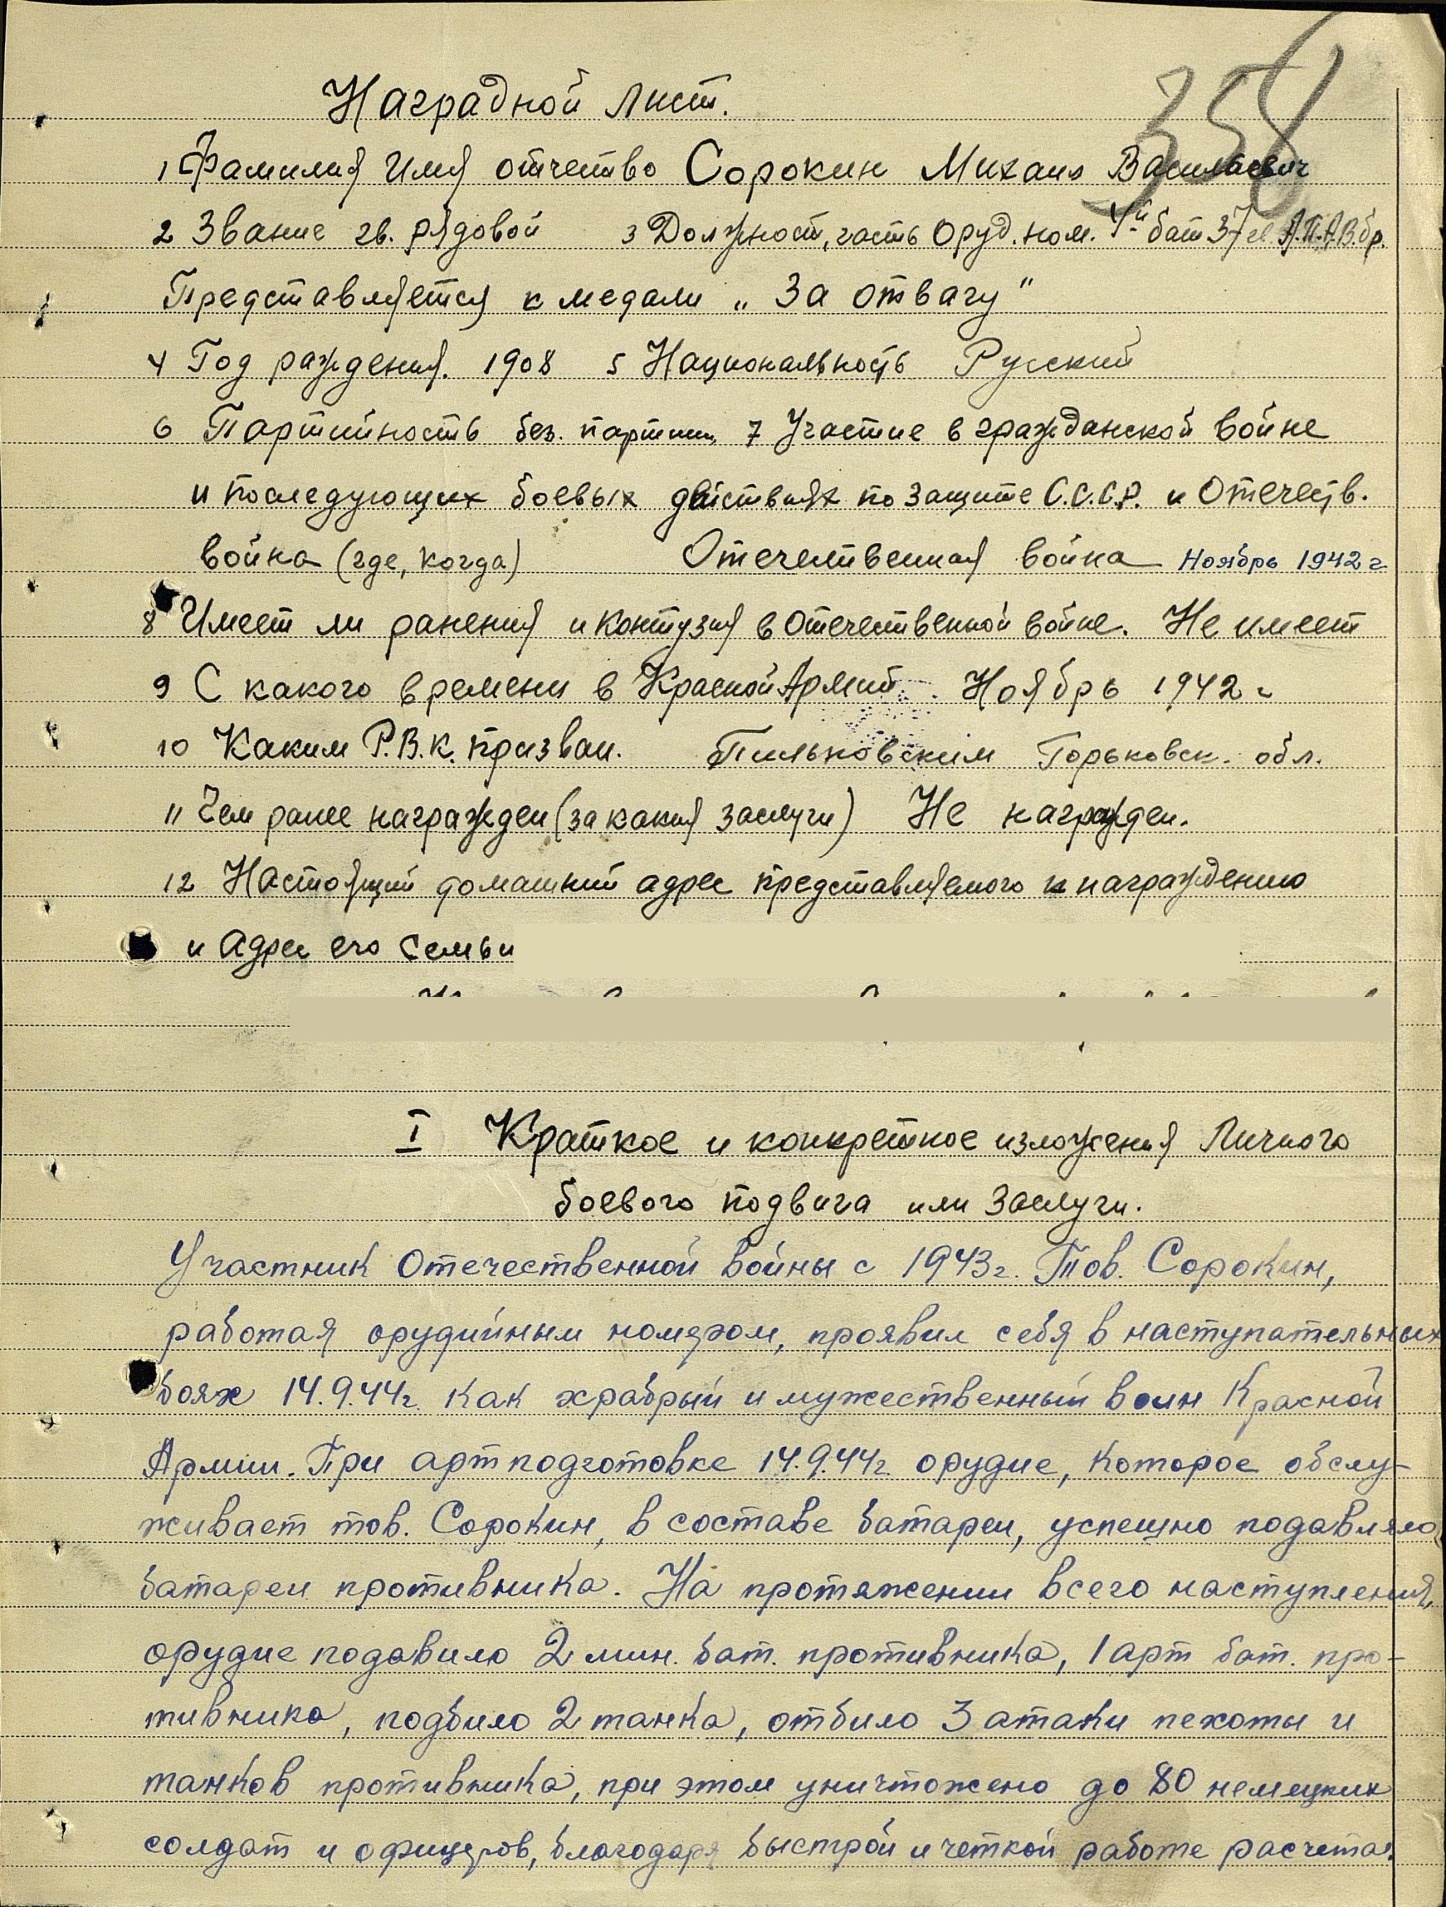 358
Наградной лист.
1 Фамилия Имя отчество Сорокин Михаил Васильевич
2 Звание гв. рядовой 3 Должност, часть Оруд. ном. 4й бат 37 гв А.П.А.В.бр.
Представляется к медали „За отвагу"
4 Год раждения. 1908 5 Национальность Русский
6 Партийность без. партии, 7 Участие в гражданской войне
и последующих боевых действиях по защите С.С.С.Р. и Отечеств.
война (где, когда) Отечественная война Ноябрь 1942 г
8 Имеет ли ранения и контузия в Отечественной войне. Не имеет
9 С какого времени в Красной Армий Ноябрь 1942 г
10 Каким Р.В.К. призван. Пильновским Горьковск. обл.
11 Чем ранее награжден (за какия заслуги) Не награжден.
12 Настоящий домашний адрес представляемого к награждению
и Адрес его семьи
I Краткое и конкретное изложения Личного
боевого подвига или Заслуги.
Участник Отечественной войны с 1943г. Тов. Сорокин,
работая орудийным номером, проявил себя в наступательных
боях 14.9.44г. как храбрый и мужественный воин Красной
Армии. При артподготовке 14.9.44г. орудие, которое обслу-
живает тов. Сорокин, в составе батареи, успешно подавляло
батареи противника. На протяжении всего наступления,
орудие подавило 2 мин. бат. противника, 1 арт бат. про-
тивника, подбило 2 танка, отбило 3 атаки пехоты и
танков противника, при этом уничтожено до 80 немецких
солдат и офицеров, благодаря быстрой и четкой работе расчета.